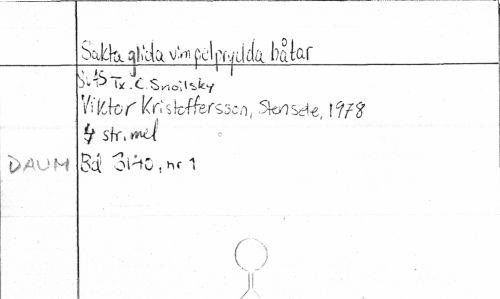 Sakta glida vimpelprydda båtar
SVAS Tx. C. Snoilsky
Viktor Kristoffersson, Stensele, 1978
4 str. mel
DAUM Bd 3140, nr 1